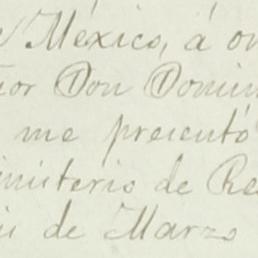 México, á on
Don Domin
me presentó
inisterio de Re
de Marzo